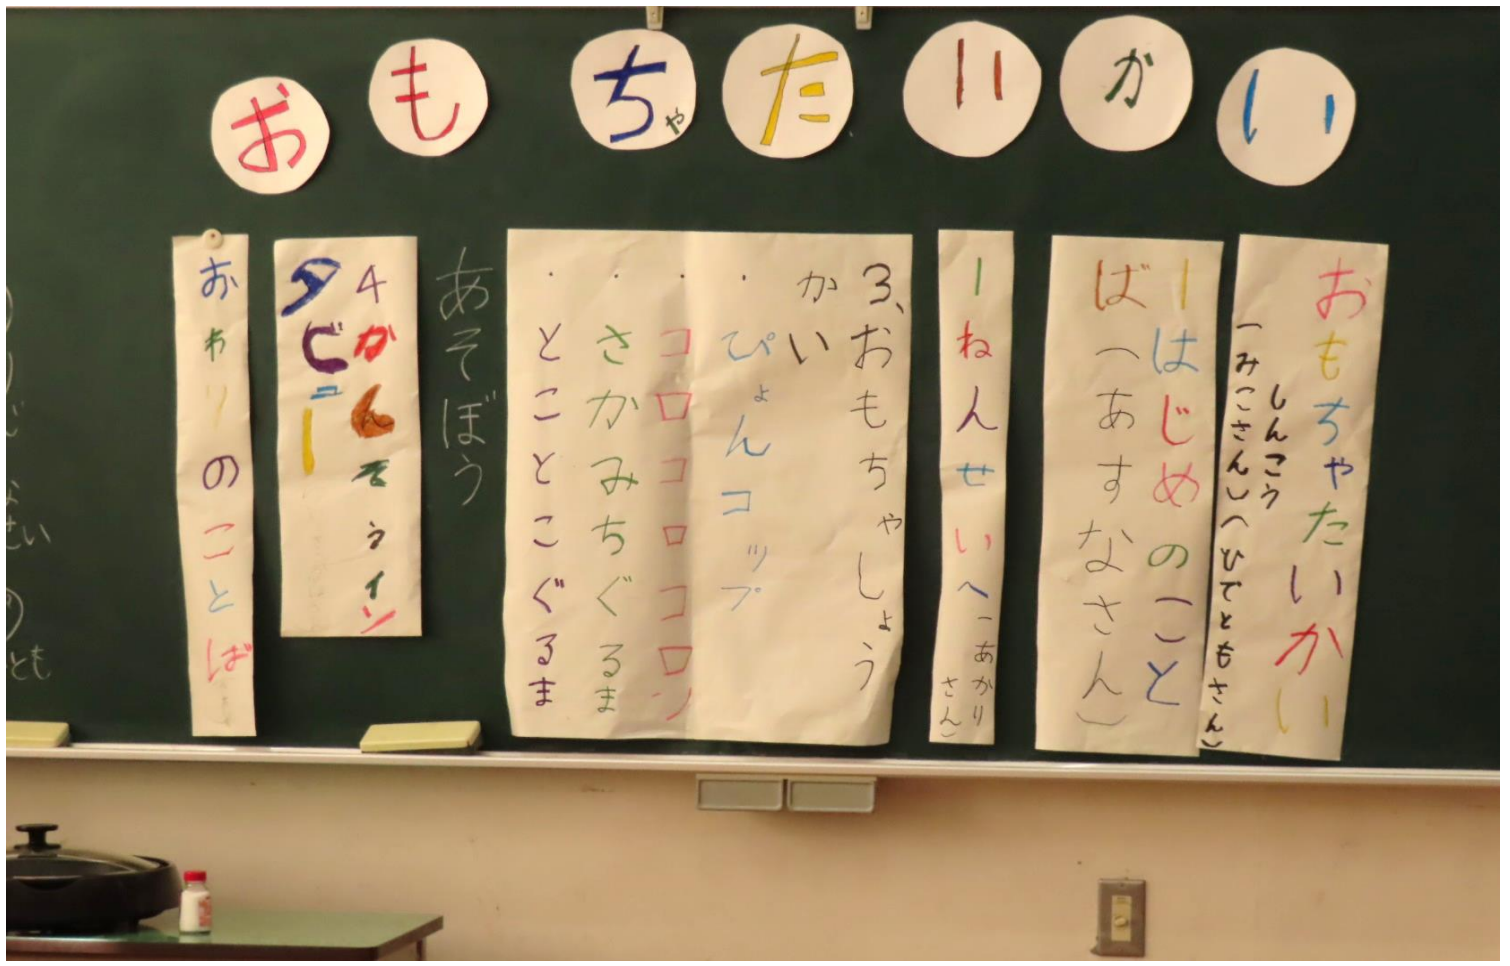 おもちゃたいかい
おもちゃたいかい
しんこう
(みこさん)(ひでともさん)
1はじめのこと
ば(あすなさん)
1ねんせいへ(あかり
さん)
3、おもちゃしょう
かい
・ぴょんコップ
・コロコロコロン
・さかみちぐるま
・とことこぐるま
あそぼう
4かんそうイン
タビュー
おわりのことば